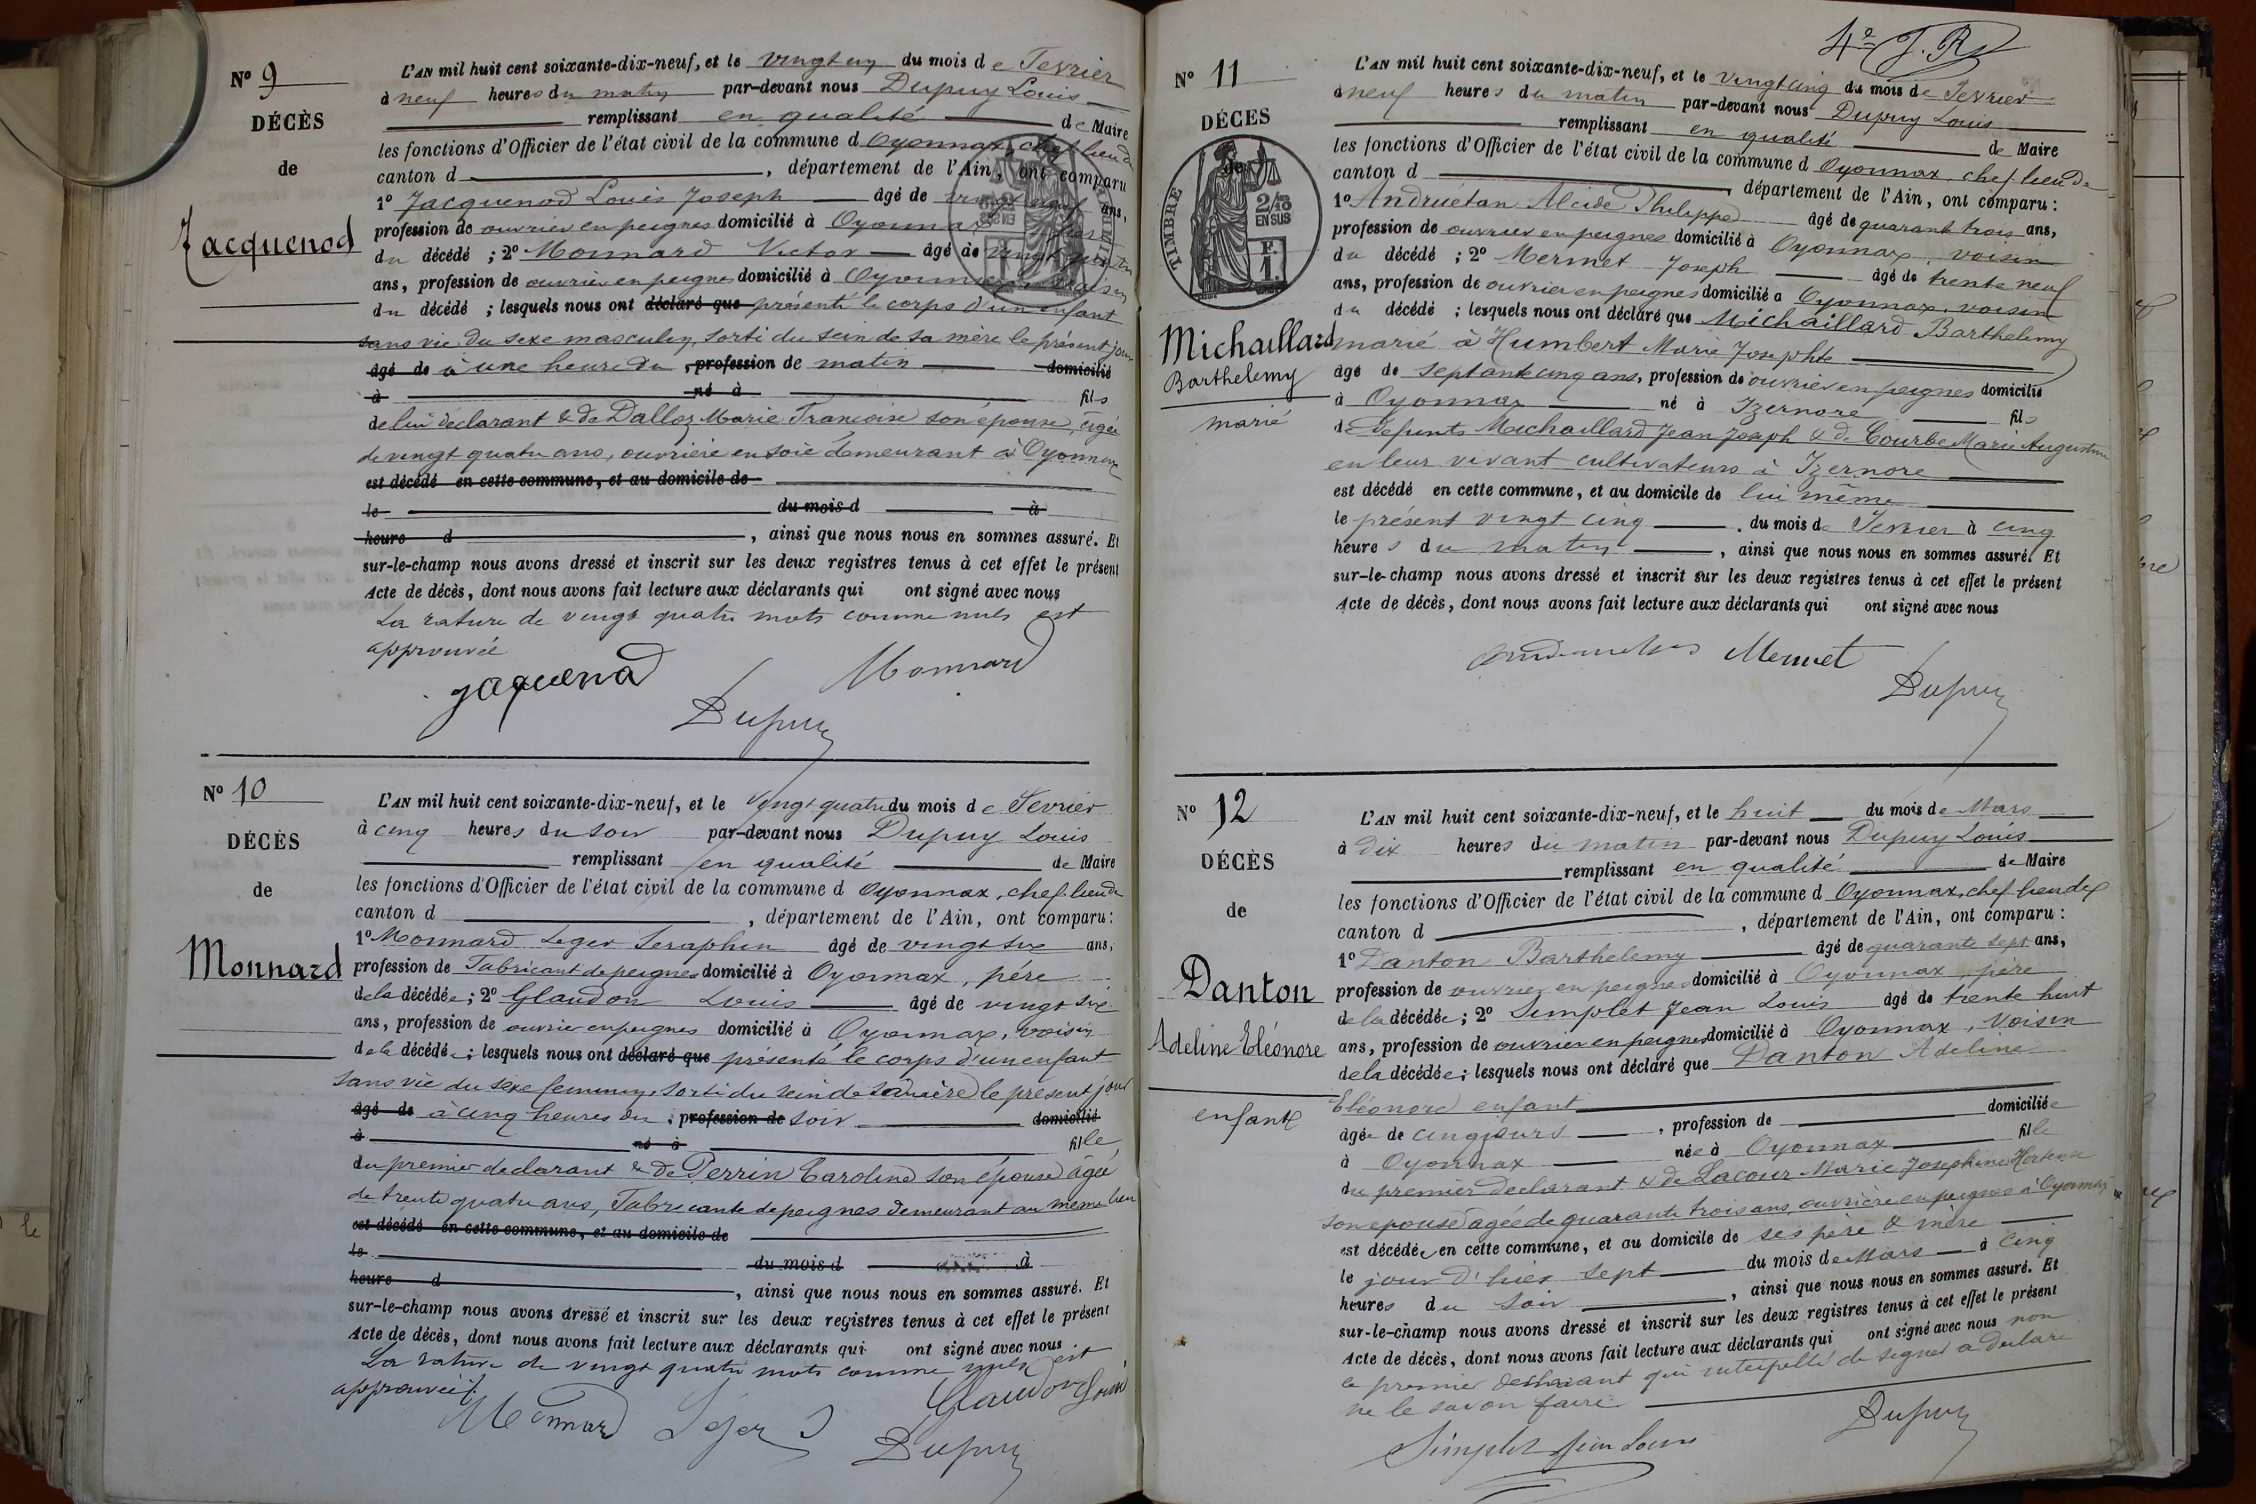 N° 9
DÉCÈS
de
Jacquenod
L'AN mil huit cent soixante-dix-neuf, et le vingt un du mois de Fevrier
à neuf heures du matin par-devant nous Dupuy Louis
remplissant en qualité de Maire
les fonctions d'Officier de l'état civil de la commune d Oyonnax, chef lieu de
canton d , département de l'Ain, ont comparu
1° Jacquenod Louis Joseph âgé de vingt neuf ans,
profession de ouvrier en peignes domicilié à Oyonnax
du décédé ; 2° Monnard Victor âgé de vingt
ans, profession de ouvrier en peignes domicilié à Oyonnax, voisin
du décédé ; lesquels nous ont déclaré que présenté le corps d'un enfant
sans vie du sexe masculin, sorti du sein de sa mère le présent jour
âgé de à une heure du , profession de matin domicilié
à né à fils
de lui déclarant & de Dalloz Marie Françoise son épouse, âgée
de vingt quatre ans, ouvrière en soie demeurant à Oyonnax
est décédé en cette commune, et au domicile de
le du mois d à
heure d , ainsi que nous nous en sommes assuré. Et
sur-le-champ nous avons dressé et inscrit sur les deux registres tenus à cet effet le présent
Acte de décès, dont nous avons fait lecture aux déclarants qui ont signé avec nous
La rature de vingt quatre mots comme nuls est
approuvée
Jaquenod Monnard
Dupuy
N° 10
DÉCÈS
de
Monnard
L'AN mil huit cent soixante-dix-neuf, et le vingt quatre du mois de Fevrier
à cinq heures du soir par-devant nous Dupuy Louis
remplissant en qualité de Maire
les fonctions d'Officier de l'état civil de la commune d Oyonnax, chef lieu de
canton d , département de l'Ain, ont comparu :
1° Monnard Leger Seraphin âgé de vingt six ans,
profession de Fabricant de peignes domicilié à Oyonnax, père
de la décédée ; 2° Glaudon Louis âgé de vingt six
ans, profession de ouvrier en peignes domicilié à Oyonnax, voisin
de la décédée ; lesquels nous ont déclaré que présenté le corps d'un enfant
sans vie du sexe feminin, sorti du sein de sa mère le présent jour
âgé de à cinq heures du , profession de soir domicilié
à né à fille
du premier declarant & de Perrin Caroline son épouse âgée
de trente quatre ans, Fabricante de peignes demeurant au même lieu
est décédé en cette commune, et au domicile de
le du mois d à
heure d , ainsi que nous nous en sommes assuré. Et
sur-le-champ nous avons dressé et inscrit sur les deux registres tenus à cet effet le présent
Acte de décès, dont nous avons fait lecture aux déclarants qui ont signé avec nous
La rature de vingt quatre mots comme nuls est
approuvée
Glaudon Louis
Monnard Leger
Dupuy
4e J. R
N° 11
DÉCÈS
de
TIMBRE
2/10
EN SUS
F.
1.
Michaillard
Barthelemy
marié
L'AN mil huit cent soixante-dix-neuf, et le vingt cinq du mois de Fevrier
à neuf heures du matin par-devant nous Dupuy Louis
remplissant en qualité de Maire
les fonctions d'Officier de l'état civil de la commune d Oyonnax, chef lieu de
canton d , département de l'Ain, ont comparu :
1° Andruétan Alcide Philippe âgé de quarante trois ans,
profession de ouvrier en peignes domicilié à Oyonnax, voisin
du décédé ; 2° Mermet Joseph âgé de trente neuf
ans, profession de ouvrier en peignes domicilié à Oyonnax, voisin
du décédé ; lesquels nous ont déclaré que Michaillard Barthelemy
marié à Humbert Marie Josephte
âgé de septante cinq ans, profession de ouvrier en peignes domicilié
à Oyonnax né à Izernore fils
de defunts Michaillard Jean Joseph & de Courbe Marie Augustine
en leur vivant cultivateurs à Izernore
est décédé en cette commune, et au domicile de lui même
le présent vingt cinq du mois de Fevrier à cinq
heures du matin , ainsi que nous nous en sommes assuré. Et
sur-le-champ nous avons dressé et inscrit sur les deux registres tenus à cet effet le présent
Acte de décès, dont nous avons fait lecture aux déclarants qui ont signé avec nous
Mermet
Dupuy
N° 12
DÉCÈS
de
Danton
Adeline Eléonore
enfant
L'AN mil huit cent soixante-dix-neuf, et le huit du mois de Mars
à dix heures du matin par-devant nous Dupuy Louis
remplissant en qualité de Maire
les fonctions d'Officier de l'état civil de la commune d Oyonnax, chef lieu de
canton d , département de l'Ain, ont comparu :
1° Danton Barthelemy âgé de quarante sept ans,
profession de ouvrier en peignes domicilié à Oyonnax, père
de la décédée ; 2° Simplet Jean Louis âgé de trente huit
ans, profession de ouvrier en peignes domicilié à Oyonnax, voisin
de la décédée ; lesquels nous ont déclaré que Danton Adeline
Eléonore enfant
âgée de cinq jours , profession de domiciliée
à Oyonnax née à Oyonnax fille
du premier declarant & de Lacour Marie Josephine Hortense
son epouse âgée de quarante trois ans, ouvrière en peignes à Oyonnax
est décédée en cette commune, et au domicile de ses père & mère
le jour d'hier sept du mois de Mars à cinq
heures du soir , ainsi que nous nous en sommes assuré. Et
sur-le-champ nous avons dressé et inscrit sur les deux registres tenus à cet effet le présent
Acte de décès, dont nous avons fait lecture aux déclarants qui ont signé avec nous non
le premier déclarant qui interpellé de signer a declaré
ne le savoir faire
Simplet Jean Louis
Dupuy